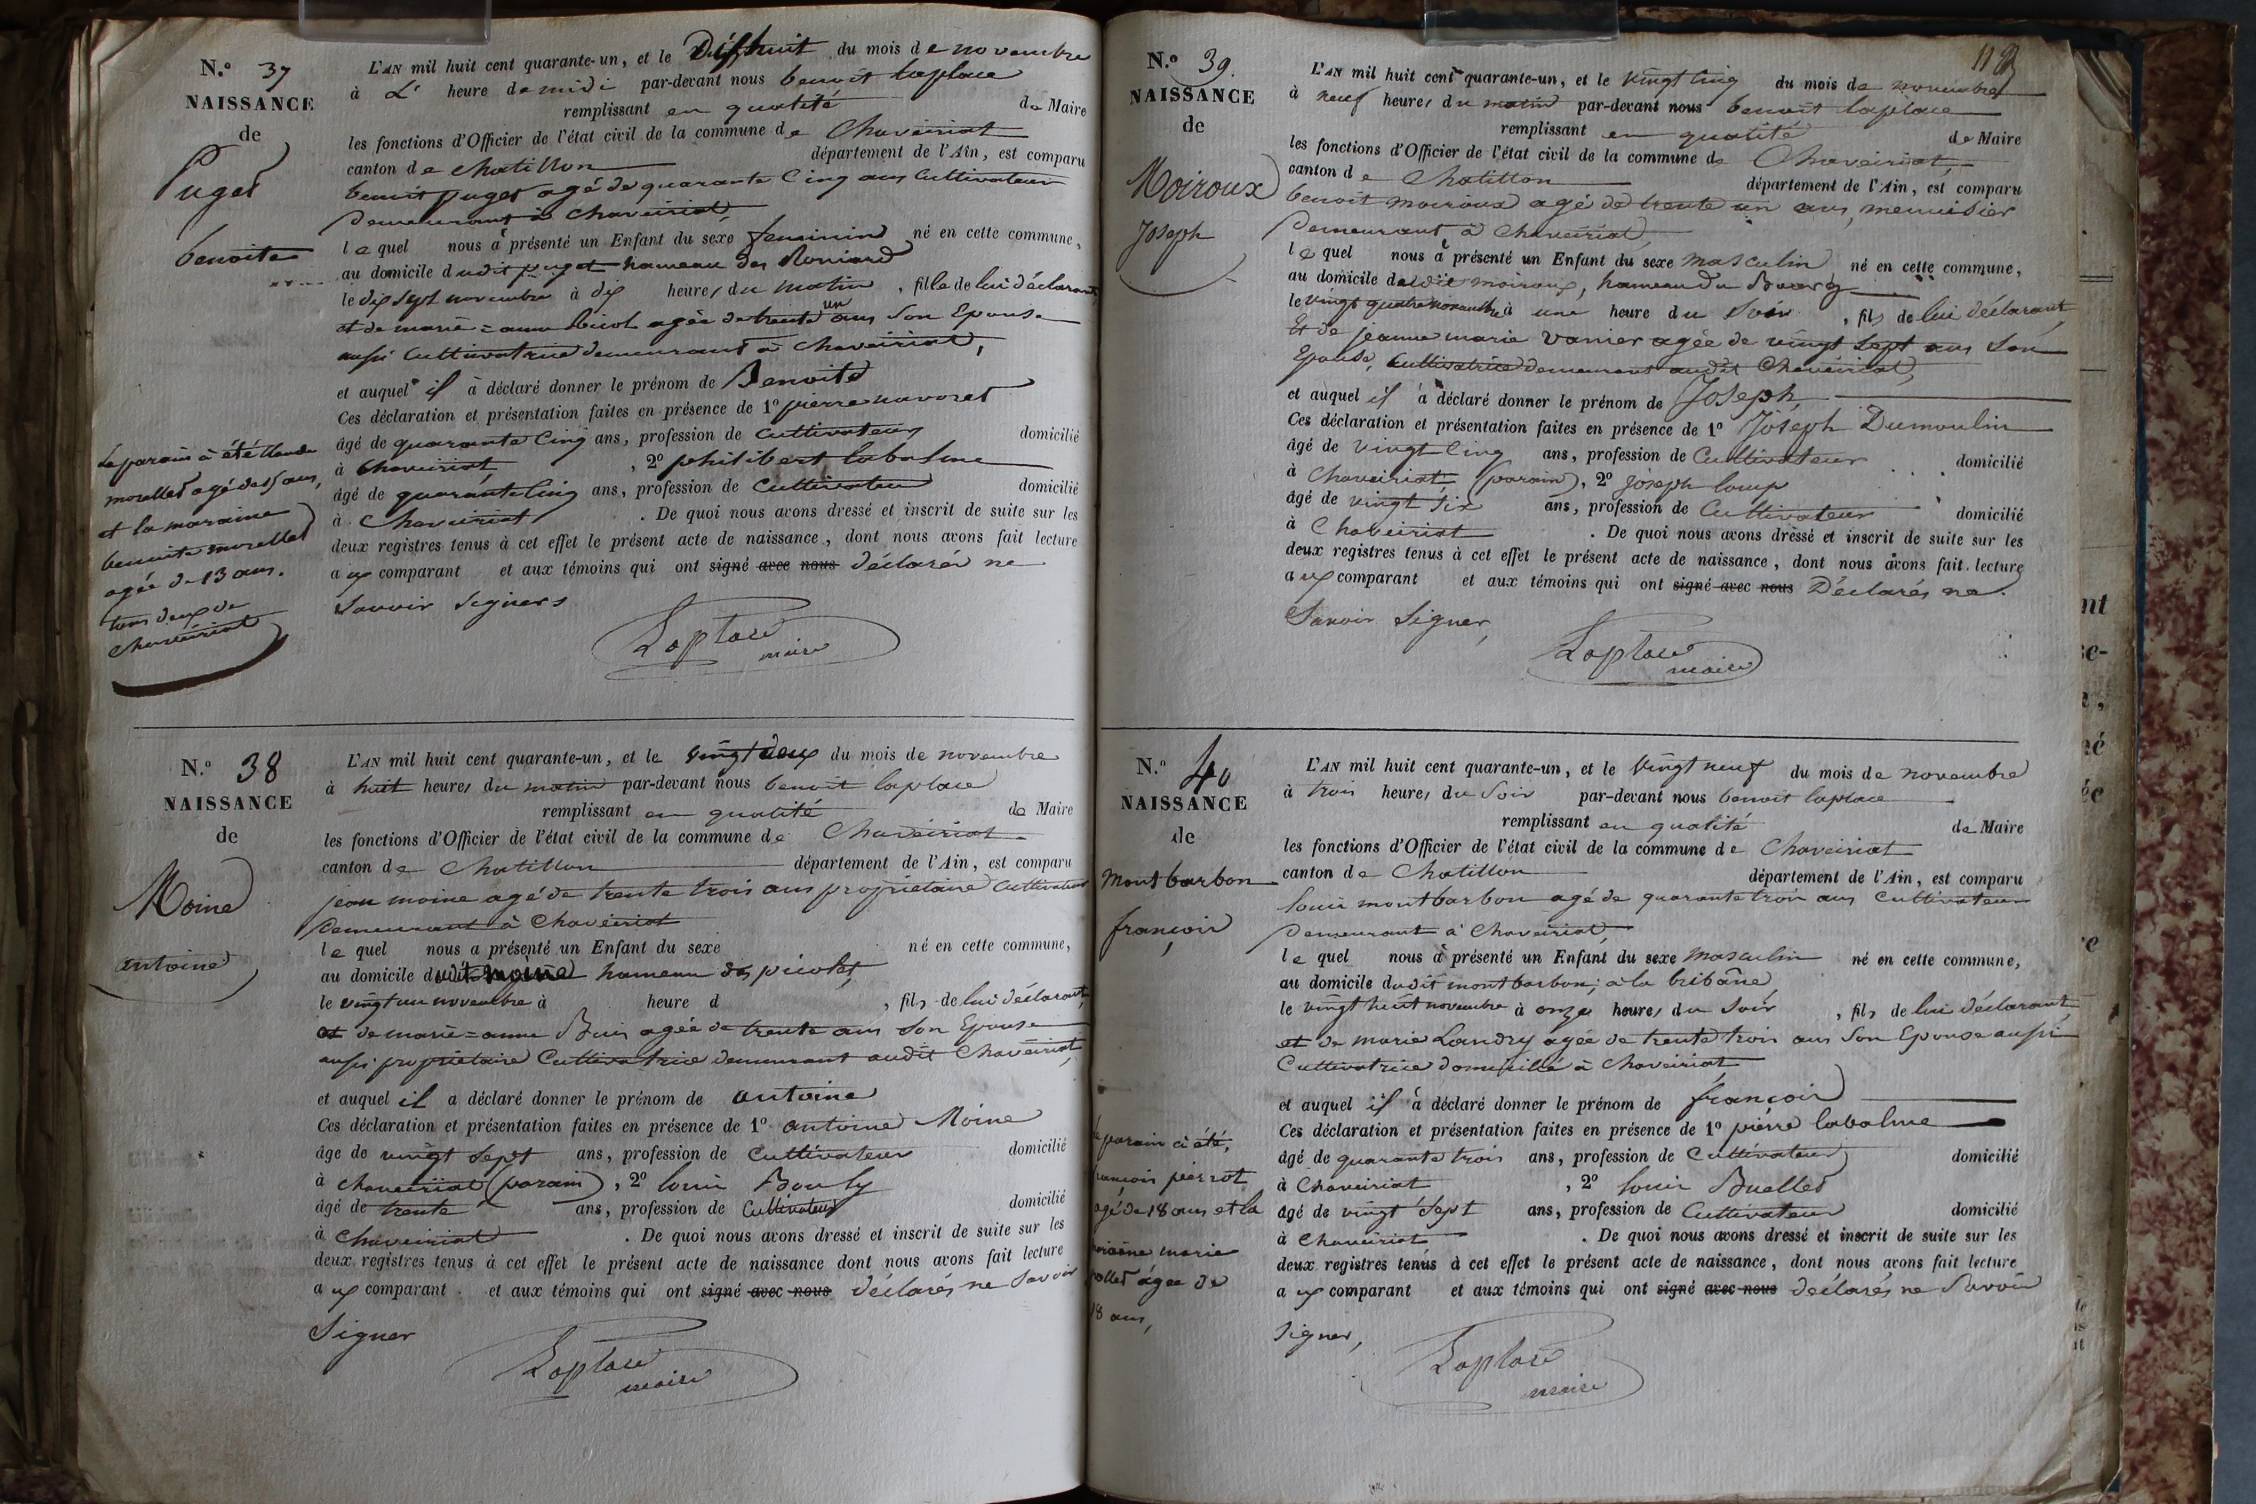 N.o 37
NAISSANCE
de
Puget
benoite
L'AN mil huit cent quarante-un, et le Dixhuit du mois de novembre
à L' heure de midi par-devant nous benoit laplace
remplissant en qualité de Maire
les fonctions d'Officier de l'état civil de la commune de Chaveiriat
canton de Chatillon département de l'Ain, est comparu
benoit puget agé de quarante Cinq ans Cultivateur
Demeurant à Chaveiriat,
lequel nous à présenté un Enfant du sexe feminin né en cette commune,
au domicile dudit puget hameau des
le dix sept novembre à dix heures du matin, fille de lui déclarant
et de marie=anne agée de trente un ans Son Epouse
aussi Cultivatrice demeurant à Chaveiriat,
et auquel il à déclaré donner le prénom de Benoite
Ces déclaration et présentation faites en présence de 1o pierre navoret
âgé de quarante Cinq ans, profession de Cultivateur domicilié
à Chaveiriat, 2o philibert labalme
âgé de quarante Cinq ans, profession de Cultivateur domicilié
à Chaveiriat. De quoi nous avons dressé et inscrit de suite sur les
deux registres tenus à cet effet le présent acte de naissance, dont nous avons fait lecture
aux comparant et aux témoins qui ont signé avec nous déclarés ne
Savoir Signers
Laplace
maire
Le parain à été Claude
morellet agé de 15 ans,
et la maraine
benoite morellet
agée de 13 ans.
tous deux de
Chaveiriat
N.o 38
NAISSANCE
de
Moine
antoine
L'AN mil huit cent quarante-un, et le vingt deux du mois de novembre
à huit heures du matin par-devant nous benoit laplace
remplissant en qualité de Maire
les fonctions d'Officier de l'état civil de la commune de Chaveiriat
canton de Chatillon département de l'Ain, est comparu
jean moine agé de trente trois ans proprietaire Cultivateur
Demeurant à Chaveiriat
lequel nous a présenté un Enfant du sexe né en cette commune,
au domicile dudit moine hameau des picolet,
le vingt un novembre à heure d , fils de lui déclarant,
et de marie=anne Buis agée de trente ans Son Epouse
aussi proprietaire Cultivatrice demeurant audit Chaveiriat,
et auquel il a déclaré donner le prénom de antoine
Ces déclaration et présentation faites en présence de 1o antoine Moine
âge de vingt Sept ans, profession de Cultivateur domicilié
à Chaveiriat (parain), 2o louis Bouly
âgé de trente ans, profession de Cultivateur domicilié
à Chaveiriat. De quoi nous avons dressé et inscrit de suite sur les
deux registres tenus à cet effet le présent acte de naissance dont nous avons fait lecture
aux comparant et aux témoins qui ont signé avec nous déclarés ne Savoir
Signer
Laplace
maire
N.o 39.
NAISSANCE
de
Moiroux
Joseph
L'AN mil huit cent quarante-un, et le vingt Cinq du mois de novembre
à neuf heures du matin par-devant nous benoit laplace
remplissant en qualité de Maire
les fonctions d'Officier de l'état civil de la commune de Chaveiriat,
canton de Chatillon département de l'Ain, est comparu
benoit moiroux agé de trente un ans, menuisier
Demeurant à Chaveiriat,
lequel nous à présenté un Enfant du sexe masculin né en cette commune,
au domicile dudit moiroux, hameau du Bourg
le vingt quatre novembre à une heure du Soir, fils de lui déclarant,
Et de jeanne marie vanier agée de vingt Sept ans Son
Epouse, Cultivatrice demeurant audit Chaveiriat,
et auquel il à déclaré donner le prénom de Joseph,
Ces déclaration et présentation faites en présence de 1o Joseph Dumoulin
âgé de vingt Cinq ans, profession de Cultivateur domicilié
à Chaveiriat (parain), 2o joseph loup
âgé de vingt Six ans, profession de Cultivateur domicilié
à Chaveiriat. De quoi nous avons dressé et inscrit de suite sur les
deux registres tenus à cet effet le présent acte de naissance, dont nous avons fait lecture
aux comparant et aux témoins qui ont signé avec nous Déclarés ne
Savoir Signer,
Laplace
maire
N.o 40
NAISSANCE
de
Montbarbon
françois
L'AN mil huit cent quarante-un, et le Vingt neuf du mois de novembre
à trois heures du Soir par-devant nous benoit laplace
remplissant en qualité de Maire
les fonctions d'Officier de l'état civil de la commune de Chaveiriat
canton de Chatillon département de l'Ain, est comparu
louis montbarbon agé de quarante trois ans Cultivateur
Demeurant à Chaveiriat,
lequel nous à présenté un Enfant du sexe masculin né en cette commune,
au domicile dudit montbarbon, à la bribane,
le vingt huit novembre à onze heures du Soir, fils de lui déclarant
et de marie Landry agée de trente trois ans Son Epouse aussi
Cultivatrice domicilié à Chaveiriat,
et auquel il à déclaré donner le prénom de françois
Ces déclaration et présentation faites en présence de 1o pierre labalme
âgé de quarante trois ans, profession de Cultivateur domicilié
à Chaveiriat, 2o louis Buellet
âgé de vingt Sept ans, profession de Cultivateur domicilié
à Chaveiriat. De quoi nous avons dressé et inscrit de suite sur les
deux registres tenus à cet effet le présent acte de naissance, dont nous avons fait lecture
aux comparant et aux témoins qui ont signé avec nous déclarés ne Savoir
Signer,
Laplace
maire
parain a été,
françois pierrot
agé de 18 ans et la
maraine marie
agée de
18 ans,